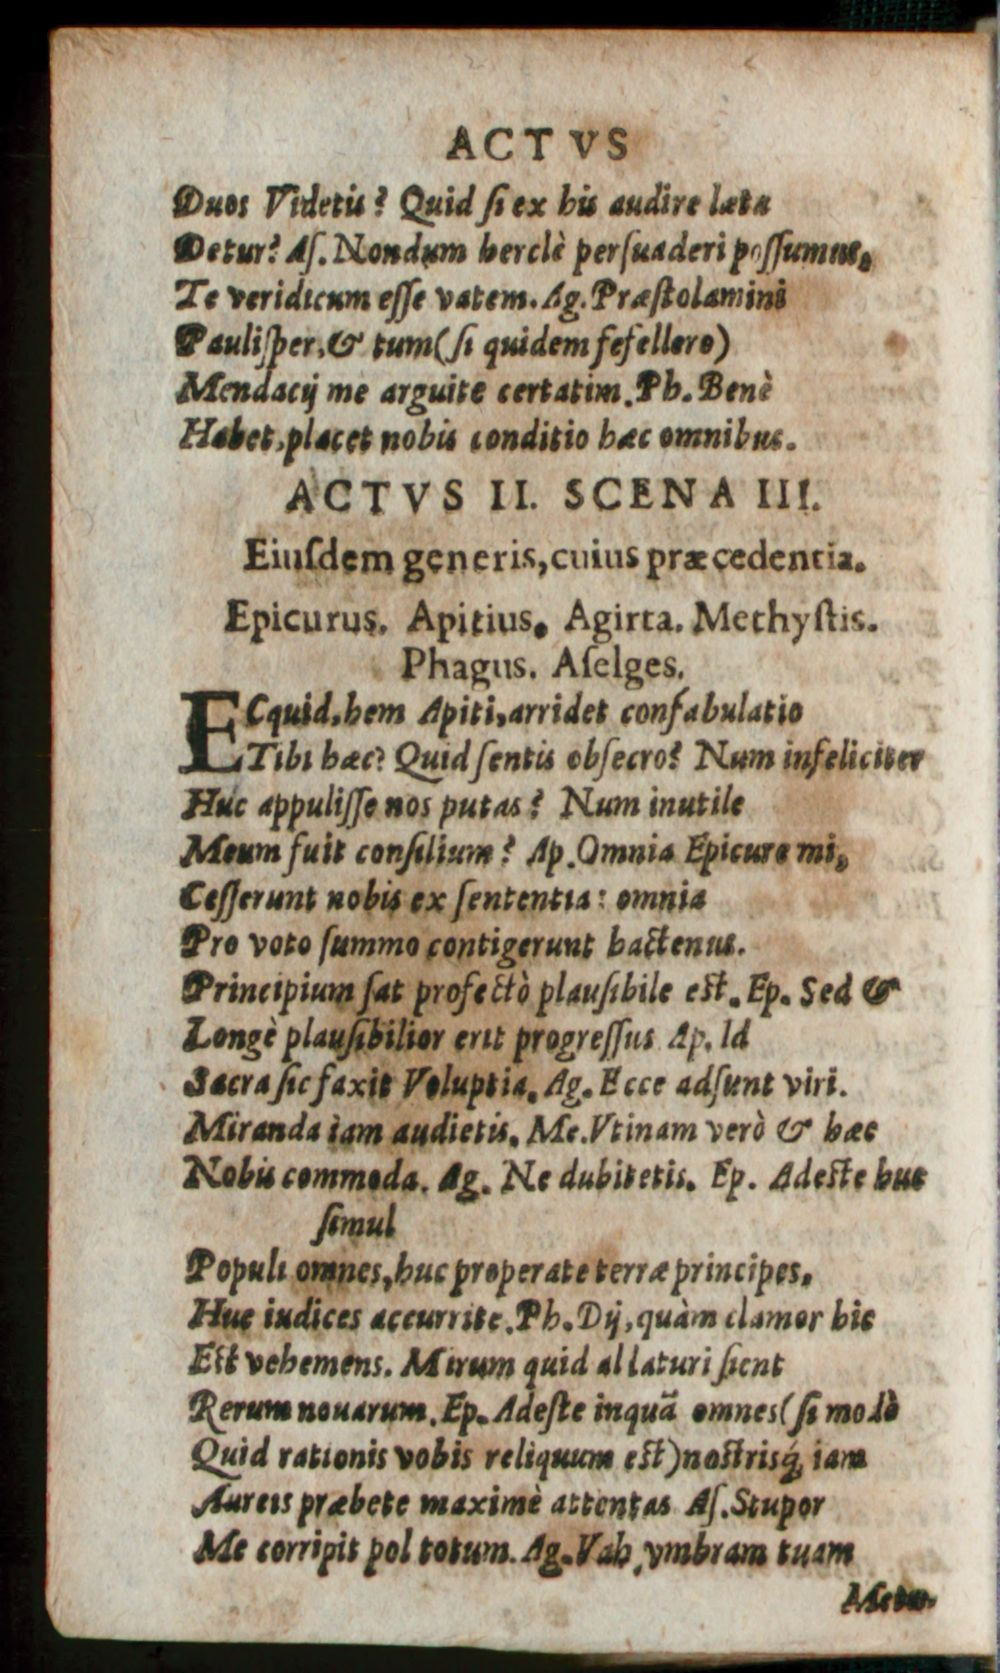 ACTVS
Duos Videtis? Quid ſi ex his audire læta
Detur? Aſ. Nondum herclè perſuaderi poſſumus,
Te veridicum eſſe vatem. Ag. Præſtolamini
Pauliſper, & tum (ſi quidem fefellero)
Mendacij me arguite certatim. Ph. Benè
Habet, placet nobis conditio hæc omnibus.
ACTVS II. SCENA III.
Eiuſdem generis, cuius præcedentia.
Epicurus. Apitius. Agirta. Methyſtis.
Phagus. Aſelges.
ECquid, hem Apiti, arridet confabulatio
Tibi hæc? Quid ſentis obſecro? Num infeliciter
Huc appuliſſe nos putas? Num inutile
Meum fuit conſilium? Ap. Omnia Epicure mi,
Ceſſerunt nobis ex ſententia: omnia
Pro voto ſummo contigerunt hactenus.
Principium ſat profectò plauſibile eſt. Ep. Sed &
Longè plauſibilior erit progreſſus Ap. Id
Sacra ſic faxit Voluptia. Ag. Ecce adſunt viri.
Miranda iam audietis. Me. Vtinam verò & hæc
Nobis commoda. Ag. Ne dubitetis. Ep. Adeſte huc
ſimul
Populi omnes, huc properate terræ principes,
Huc iudices accurrite. Ph. Dij, quàm clamor hic
Eſt vehemens. Mirum quid allaturi ſient
Rerum nouarum. Ep. Adeſte inquã omnes (ſi modò
Quid rationis vobis reliquum eſt) noſtrisq́; iam
Aureis præbete maximè attentas Aſ. Stupor
Me corripit pol totum. Ag. Vah, vmbram tuam
Metu-